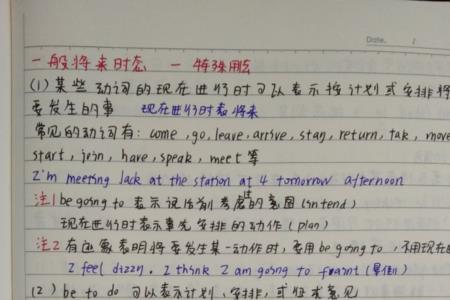 Date.
一般将来时态 一 特殊用法
(1) 某些 动词的现在进行时可以表示按计划或安排将
要发生的事 现在进行时表将来
常见的动词有: come, go, leave, arrive, stay, return, tak, move
start, join, have, speak, meet 等
I'm meeting lack at the station at 4 tomorrow afternoon
注1 be going to 表示说话前考虑过的意图 (intend)
现在进行时表示事先安排的动作 (plan)
注2 有迹象表明将要发生某一动作时, 要用 be going to, 不用现在
I feel dizzy. I think I am going to faint (晕倒)
(2) be to do 可以表示计划, 安排, 或征求意见